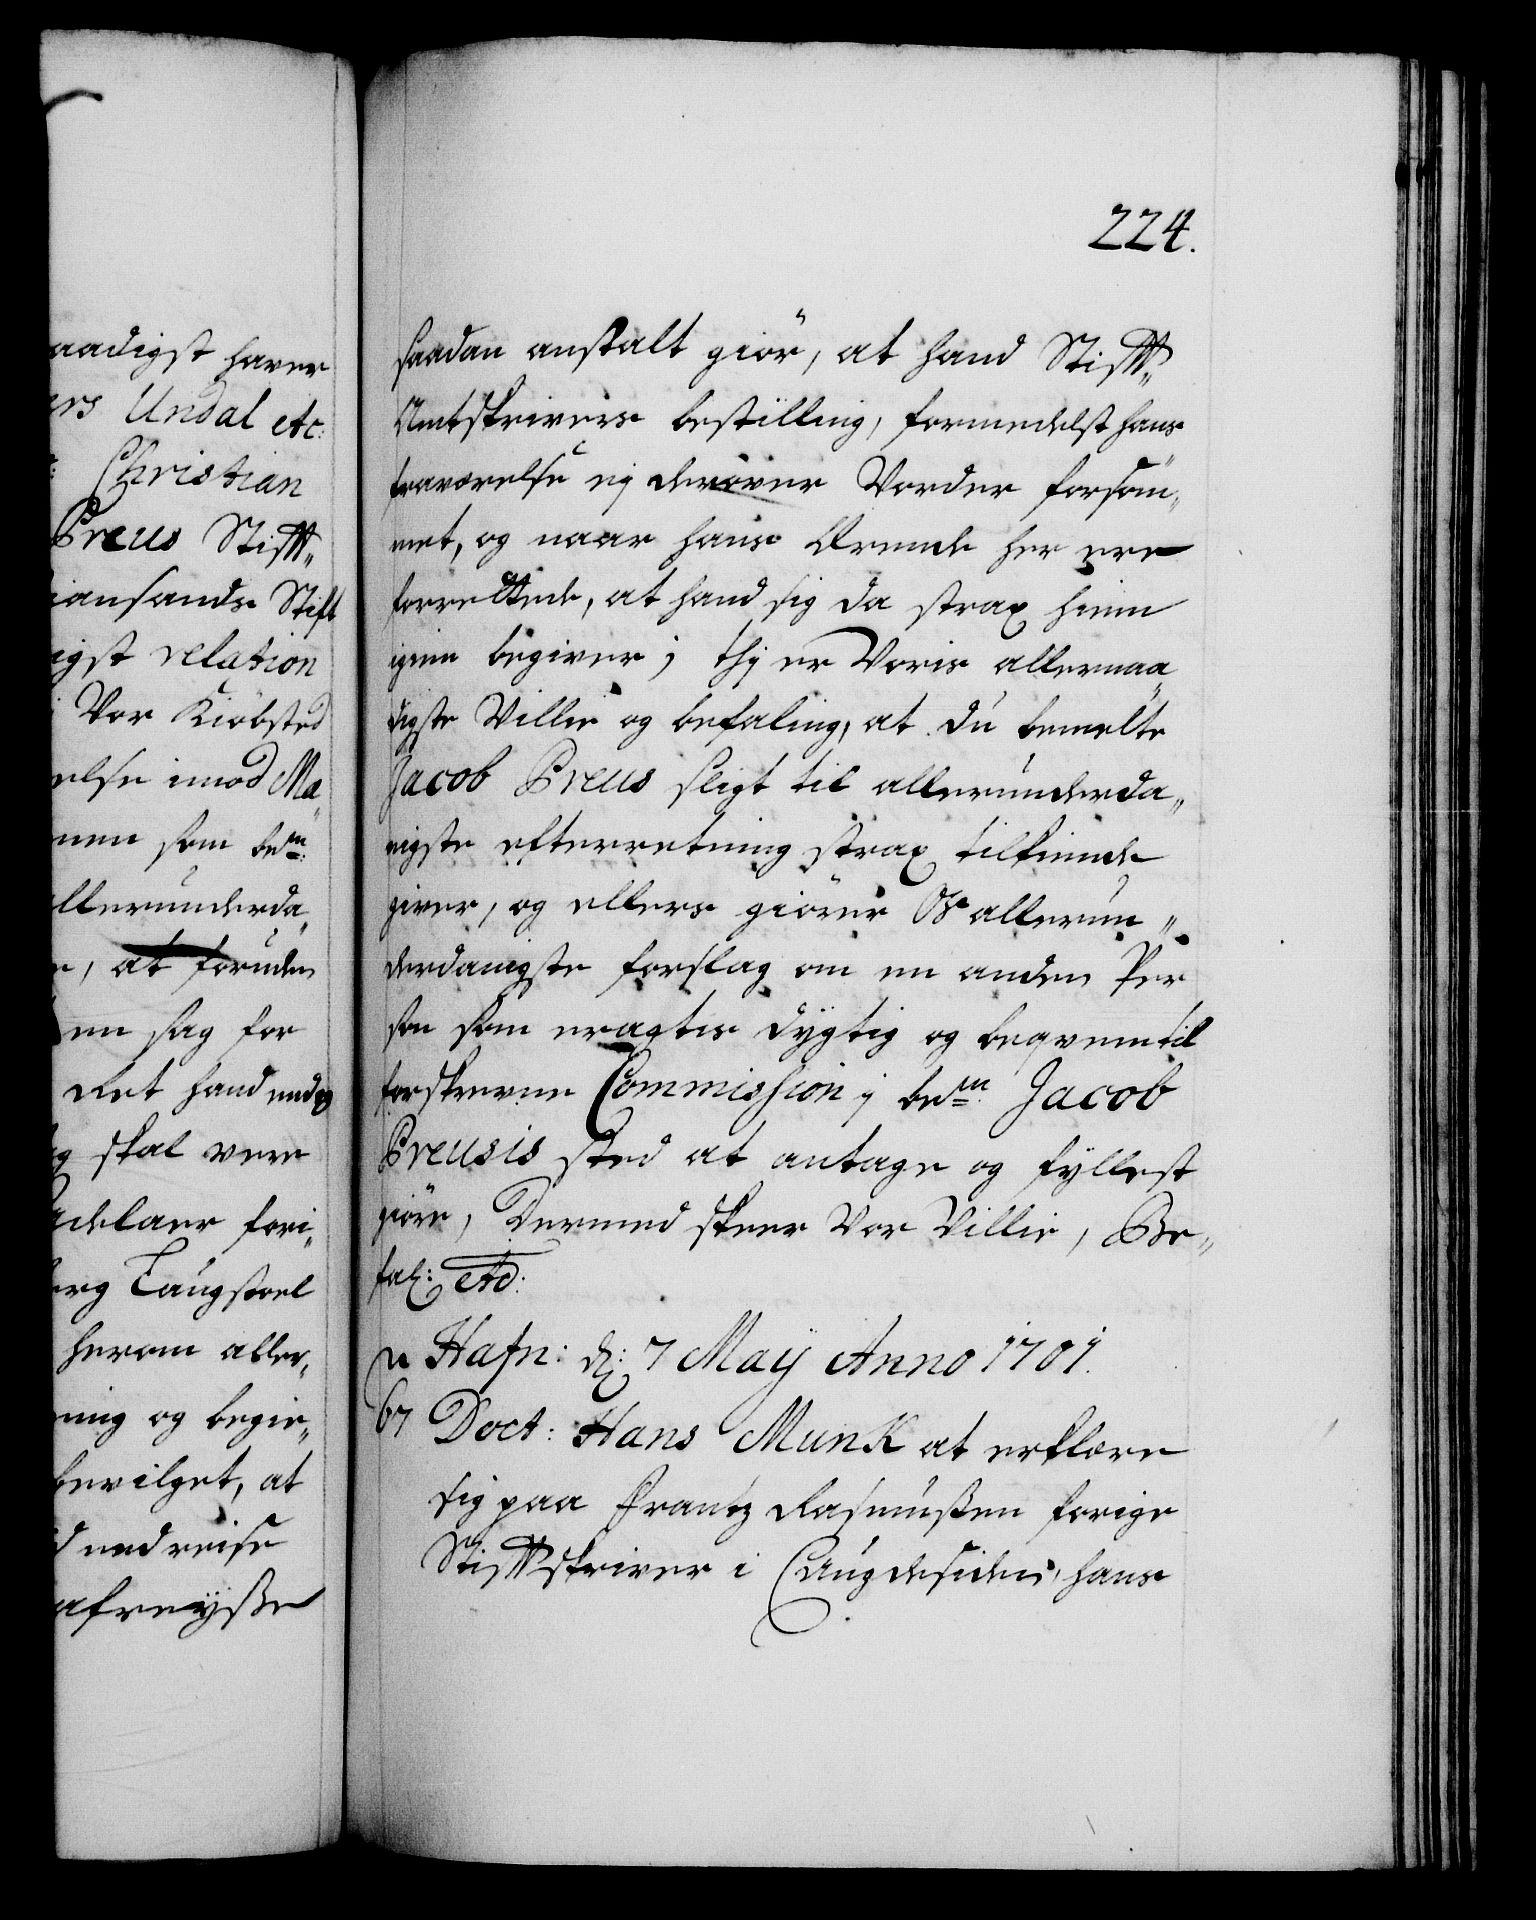 aadigst haver
ers Undal etc:
Christian
Preus Stifft„
iansands Stift
igst relation
Vor Kiöbsted
else imod Ma„
nen som bem:
llerunderda„
e, at foruden
en sag for
det hand end
skal vere
adelaer fori„
erg Laugstoel
herom aller„
ning og begie„
bevilget, at
d nedreise
afreyße
224.
saadan anstalt giör, at hand Stifft„
Amtskrivers bestilling, formedelst hans
fraværelse ej derover Vorder forsöm„
met, og naar hans Ærende her ere
forrettede, at hand sig da strax hiem
igien begiver; thj er Voris allernaa„
digste Villie og befaling, at du bemelte
Jacob Preus sligt til allerunderda„
nigste efterretning strax tilkiende
giver, og ellers giörer Os allerun„
derdanigste forslag om en anden Per
son som eragtes dygtig og beqvem til
forskrevne Commission j bem: Jacob
Preusis sted at antage og fyllest
giöre, Dermed skeer Vor Villie, Be„
fal: etc:
Hafn: d: 7 Maÿ Anno 1701.
67 Doct: Hans Munk at erklære
sig paa Frantz Rasmußen forige
Stifftskriver i Laugdesiden, hans